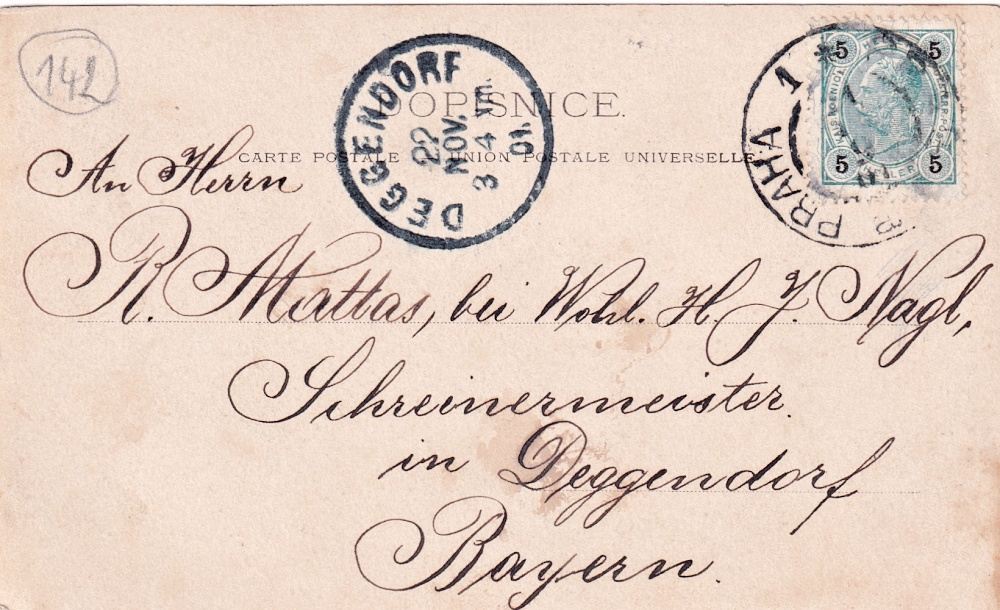 142
DOPISNICE.
CARTE POSTALE UNION POSTALE UNIVERSELLE
DEGGENDORF
22
NOV.
3 4 Vm.
01.
PRAHA 1
5 5
5 5
An Herrn
R. Mattas, bei Wohl. H. J. Nagl,
Schreinermeister.
in Deggendorf
Bayern.